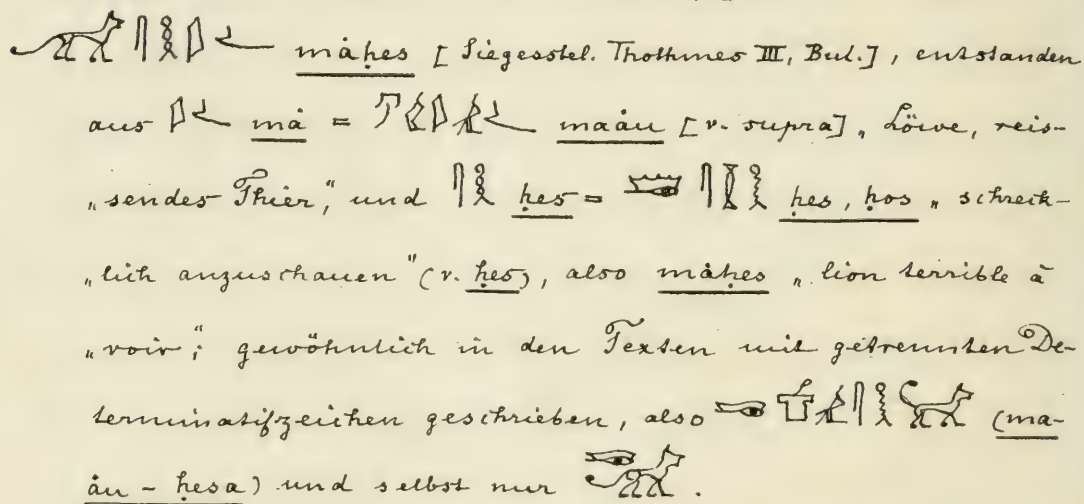 måḥes [Siegesstel. Thothmes III, Bul.], entstanden
aus må = maåu [v. supra] „Löwe, reis-
„sendes Thier,“ und ḥes = ḥes, ḥos „schreck-
„lich anzuschauen“ (v. ḥes), also måḥes „lion terrible à
„voir“; gewöhnlich in den Texten mit getrennten De-
terminatifzeichen geschrieben, also (ma-
åu - ḥesa) und selbst nur .